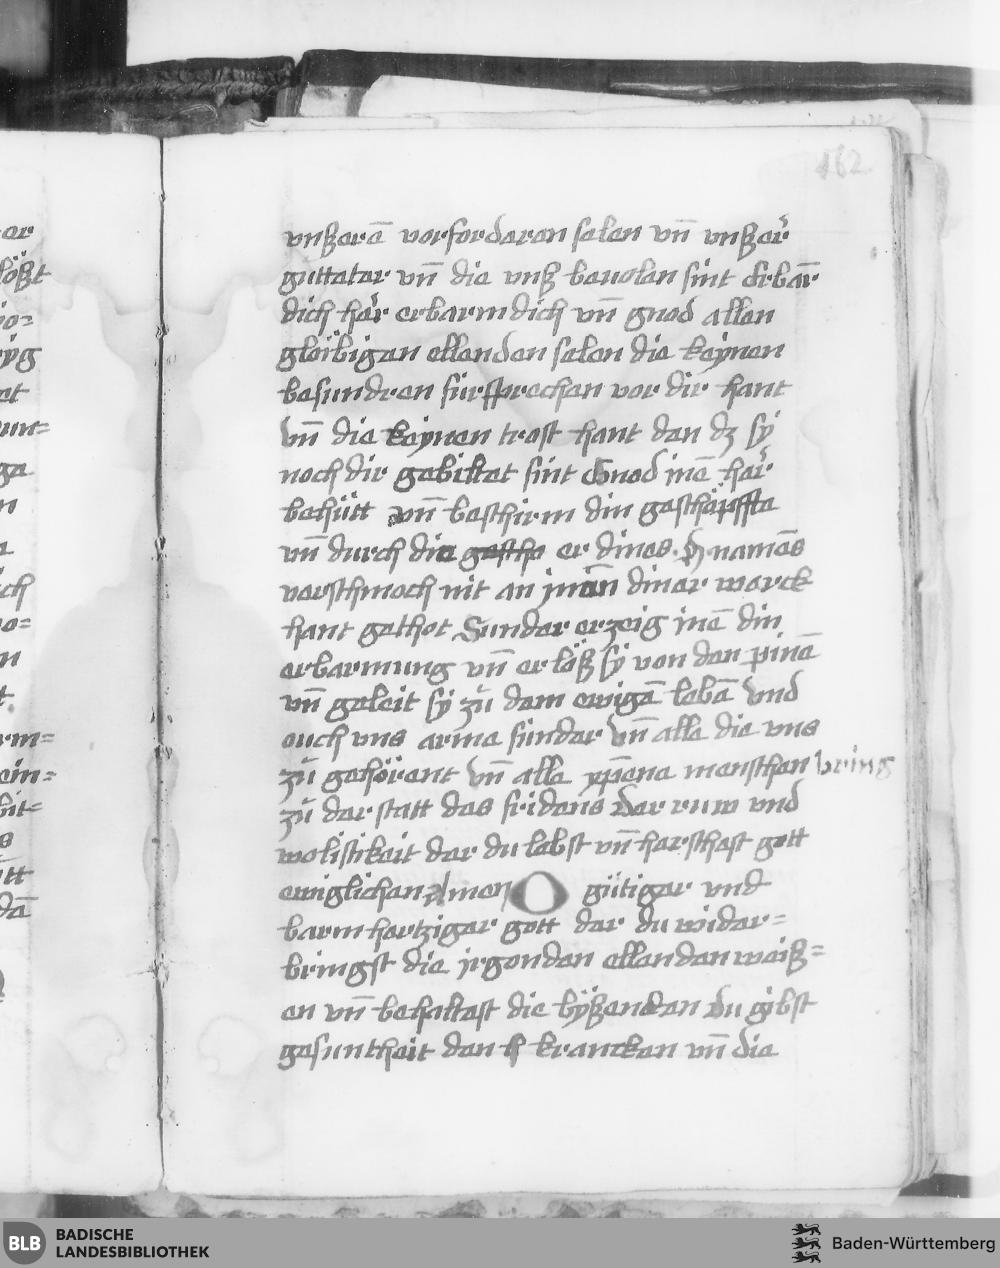 162
vnßerē vorforderen selen vn̄ vnßer̄
guttater vn̄ die vnß beuolen sint Erbar̄
dich her erbarm dich vn̄ gnod allen
gleibigen ellenden selen die keynen
besundren fürsprechen vor dir hant
vn̄ die keynen trost hant den dz sy
noch dir gebiltet sint Gnod inē her
behütt vn̄ beschirm din geschöpffte
vn̄ durch die gescho er dines h namēs
verschmoch nit an inen diner werck
hant gethot Sunder erzeig inē din
erbarmung vn̄ erlöß sy von den pinē
vn̄ geleit sy zů dem ewigē lebē vnd
ouch vns arme sünder vn̄ alle die vns
zů gehörent vn̄ alle xp̄ene menschen bring
zů der statt das fridens der ruw vnd
wolistikeit der du lebst vn̄ herschest gott
ewiglichen Amen O gütiger vnd
barmhertziger gott der du wider=
bringst die irgenden ellenden weiß=
en vn̄ behaltest die byßenden du gibst
gesuntheit den krancken vn̄ die
er
lößt
yg
et
un=
ge
n
ich
n
rm=
ein=
bit=
s
ütt
dē
BLB BADISCHE LANDESBIBLIOTHEK
Baden-Württemberg